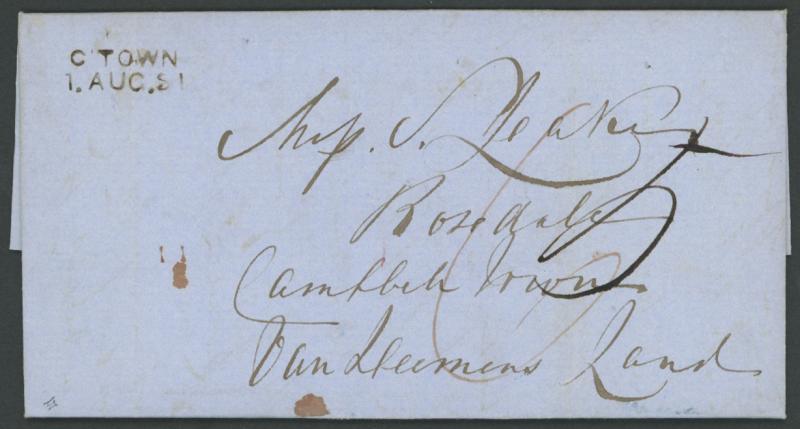 C'TOWN
1.AUG.51
Miss. S. Leake
Rosedale
Campbell Town
Van Diemens Land